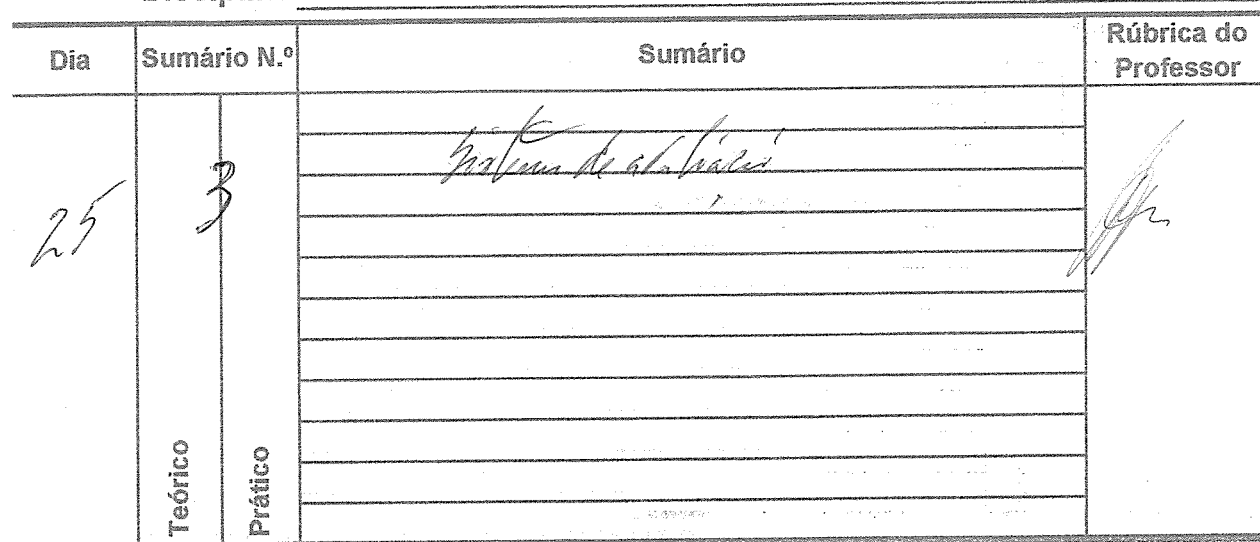 Dia
Sumário N.º
Sumário
Rúbrica do
Professor
25
3
Sistema de avaliação
Teórico
Prático